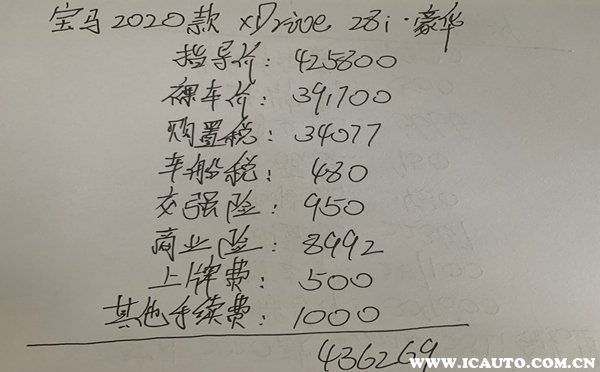 宝马2020款 xDrive 28i·豪华
指导价：425800
裸车价：391700
购置税：34077
车船税：480
交强险：950
商业险：8992
上牌费：500
其他手续费：1000
436269
WWW.ICAUTO.COM.CN